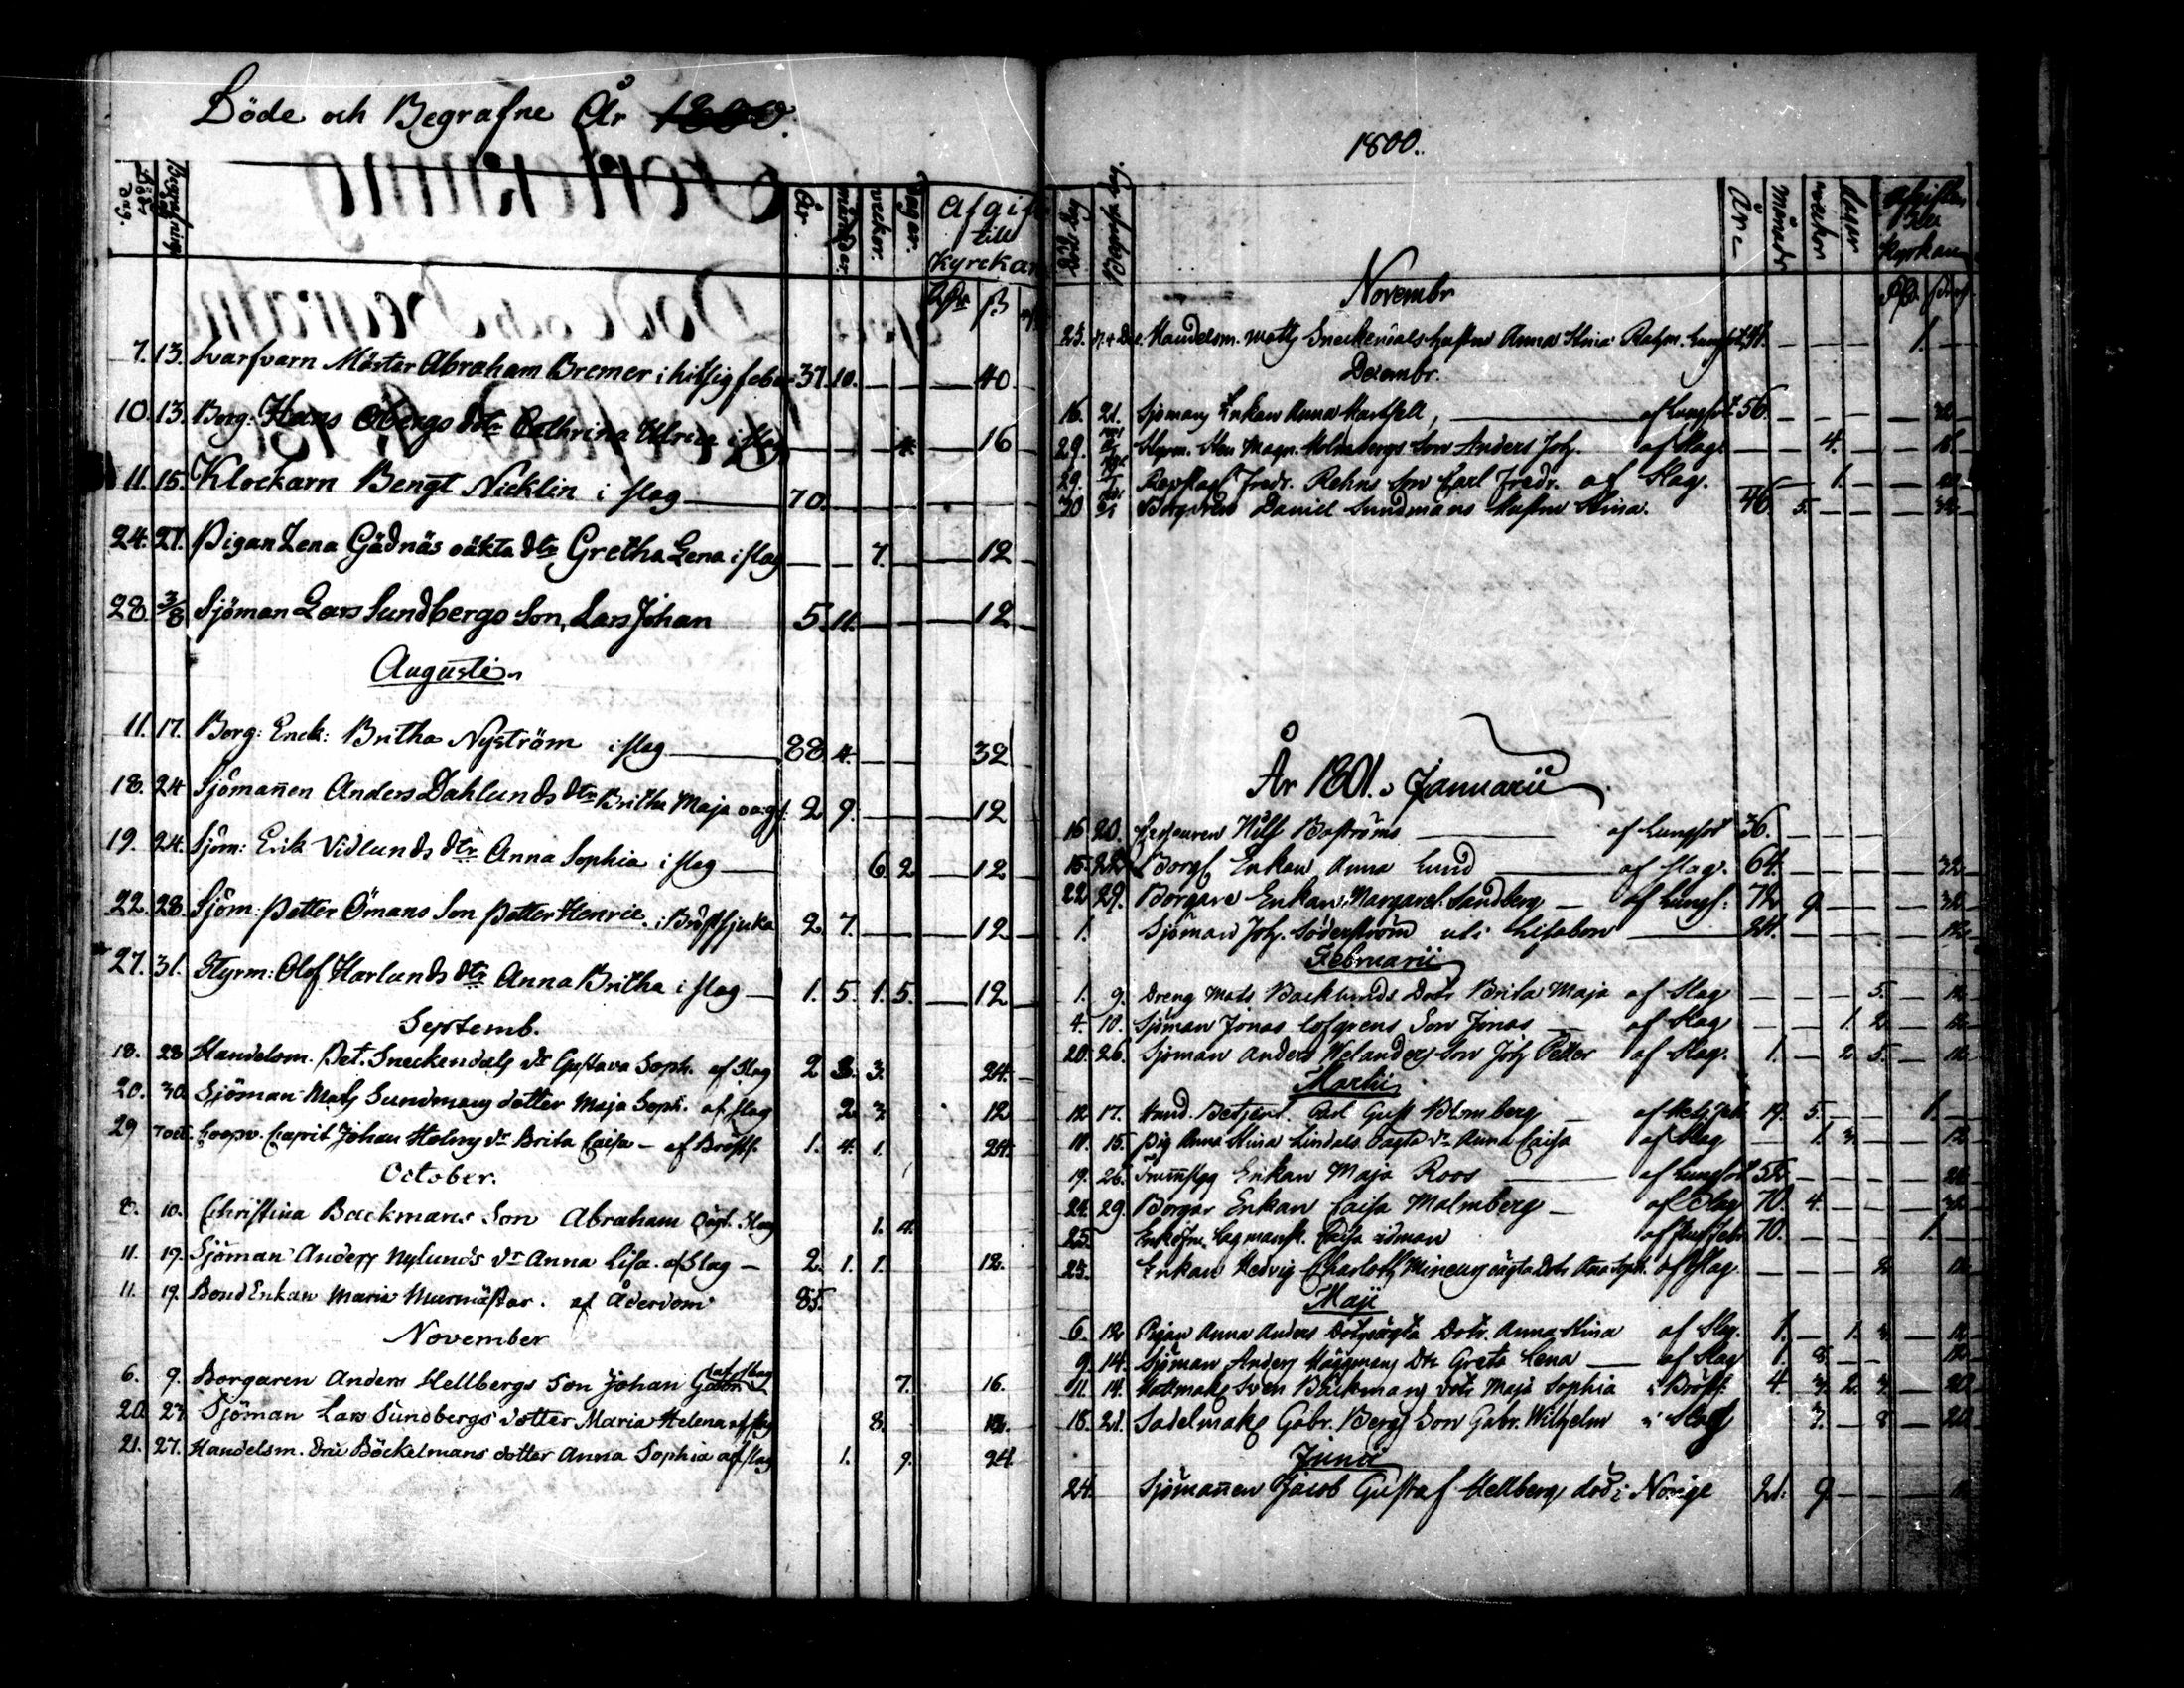 Döde och Begrafne År 1800.
Begrafnings dag. Döds dag.
År. månader. veckor. dagar. Afgift till Kyrckan
Rdr ß
7. 13. Svarfvarn Mäster Abraham Bremer i hitsig feber 37. 10. — — — 40
10. 13. Borg: Hans Öbergs dtr Cathrina Ulrica i slag — — — — 16
11. 15. Klockarn Bengt Nicklin i slag — 70.
24. 27. Pigan Lena Gädnäs oäkta dtr Gretha Lena i slag — — 7. — — 12
28. 3/8 Sjöman Lars Sundbergs Son, Lars Johan 5. 11. — — — 12
Augusti
11. 17. Borg: Enck: Britha Nyström i slag — 88 4. — — 32
18. 24 Sjömannen Anders Dahlunds dtr Britha Maja 2 9. — — — 12
19. 24. Sjöm: Erik Vidlunds dtr Anna Sophia i slag — 6 2 — 12
22. 28. Sjöm: Petter Ömans Son Petter Henric i Bröstsjuka 2. 7. — — — 12
27. 31. Styrm: Olof Harlunds dtr Anna Britha i slag — 1. 5. 1. 5. — 12
Septemb.
18. 28 Handelsm. Pet. Sneckendals dr Gustava Soph. af Slag 2 3. 3. 24.
20. 30. Sjöman Mats Sundmans dotter Maja Soph. af slag 2 3 12
29 7 oct. Coopv. Capit Johan Holms dr Brita Caisa — af Bröstf. 1. 4. 1. 24.
October.
8. 10. Christina Backmans Son Abraham oägt. Slag 1. 4.
11. 17. Sjöman Anders Nylunds dr Anna Lisa. af Slag — 2. 1. 1. 12.
11. 19. Bond Enkan Maria Murmästar. af Ålderdom 85.
November
6. 9. Borgaren Anders Hellbergs Son Johan Gabr af slag 7. 16.
20 23. Sjöman Lars Sundbergs dotter Maria Helena af slag 8. 12.
21. 27. Handelsm. Eric Böckelmans dotter Anna Sophia af slag 1. 9. 24
1800.
År — Månader veckor Dagar afgiften till Kyrkan
Novembr
23. 7. Dec. Handelsm. Matts Sneckendals hustru Anna Stina Rahm. Lungsot — — — — 1. —
Decembr.
16. 21. Sjömans Enkan Anna — af Lungsot 56. — — — — 32
29. Styrm. Magn. Holmbergs Son Anders Joh. af Slag — — 4. — — 16.
29. Repslag. Fredr. Rehns Son Carl Fredr. af Slag. — 1. — —
30 Borgaren Daniel Sundmans Hustru Stina. 46. 5. — — — 32
År 1801. Januarii
16 20. Boströms — af Lungsot 36. — — —
15. 22 Borgs Enkan Anna Lund — af slag. 64. — — — — 32
22 29. Borgare Enkan Margaret. Sandberg — af Lungs: 72 9 — — — 32
1. Sjöman Joh. Söderström uti Lisabon — 24. — — — — 12
Februarii
1. 9. Dreng Mats Backlunds Dotr Brita Maja af Slag — — — 5. — 12
4. 10. Sjöman Jonas Löfgrens Son Jonas — af Slag — — 1. 2 — 12
20. 26. Sjöman Anders Welanders Son Joh Petter af Slag. 1. — 2 5. — 12
Martii
12 17. Hand. Betjent. Carl Gust Blomberg — af 19. 5. — — 1. —
11. 15. Pig Anna Stina Lindals oägta dr Anna Caisa af Slag — 1. 3. — — 12
19. 26. Enkan Maja Roos — af Lungsot 52 — — — —
24. 29. Borgar Enkan Caisa Malmberg — af Slag 70. 4. — — — 32
25. Lagmansk. Caisa 70. — — — 1. —
25. Enkan Hedvig Charlotta oägta Dotr Ana Soph. af Slag. — — — 2. 12
Maji
6. 12 Pigan Anna Anders Dotrs oägta Dotr. Anna Stina af Slag. 1. — 1. 3. — 12
9. 14. Sjöman Anders Häggmans Dtr Greta Lena — af Slag 1. 8. — — 12
11. 14. Hattmak. Sven Bäckmans dotr Maja Sophia i Bröstf. 4. 3. 2. 3. — 20
18. 21. Sadelmak. Gabr. Bergs Son Gabr. Wilhelm i Slag 7. — 8 — 20
Junii
24. Sjömannen Jacob Gustaf Hellberg död i Norige 21. 9 — — —